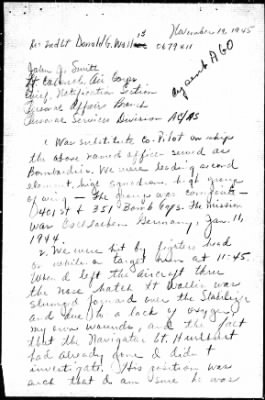 November 19, 1945
Re: 2nd Lt Donald G. Wallin
John J. Smith
Lt Colonel, Air Corps
Chief, Notification Section
Personal Affairs Branch
Personal Services Division AC/AS
1. Was substitute Co-Pilot on ship
the above named officer served as
Bombardier. We were leading second
element, high squadron, high group
of wing — The group was composite —
401st & 351 Bomb Gps. The mission
was Oschersleben Germany, Jan. 11,
1944.
2. We were hit by fighters head
on while on target run at 11:45.
When I left the aircraft thru
the nose hatch Lt Wallin was
slumped forward over the Stabilizer
and due to a lack of oxygen,
my own wounds, and the fact
that the Navigator Lt.
had already gone I didn't
investigate. His position was
such that I am sure he was